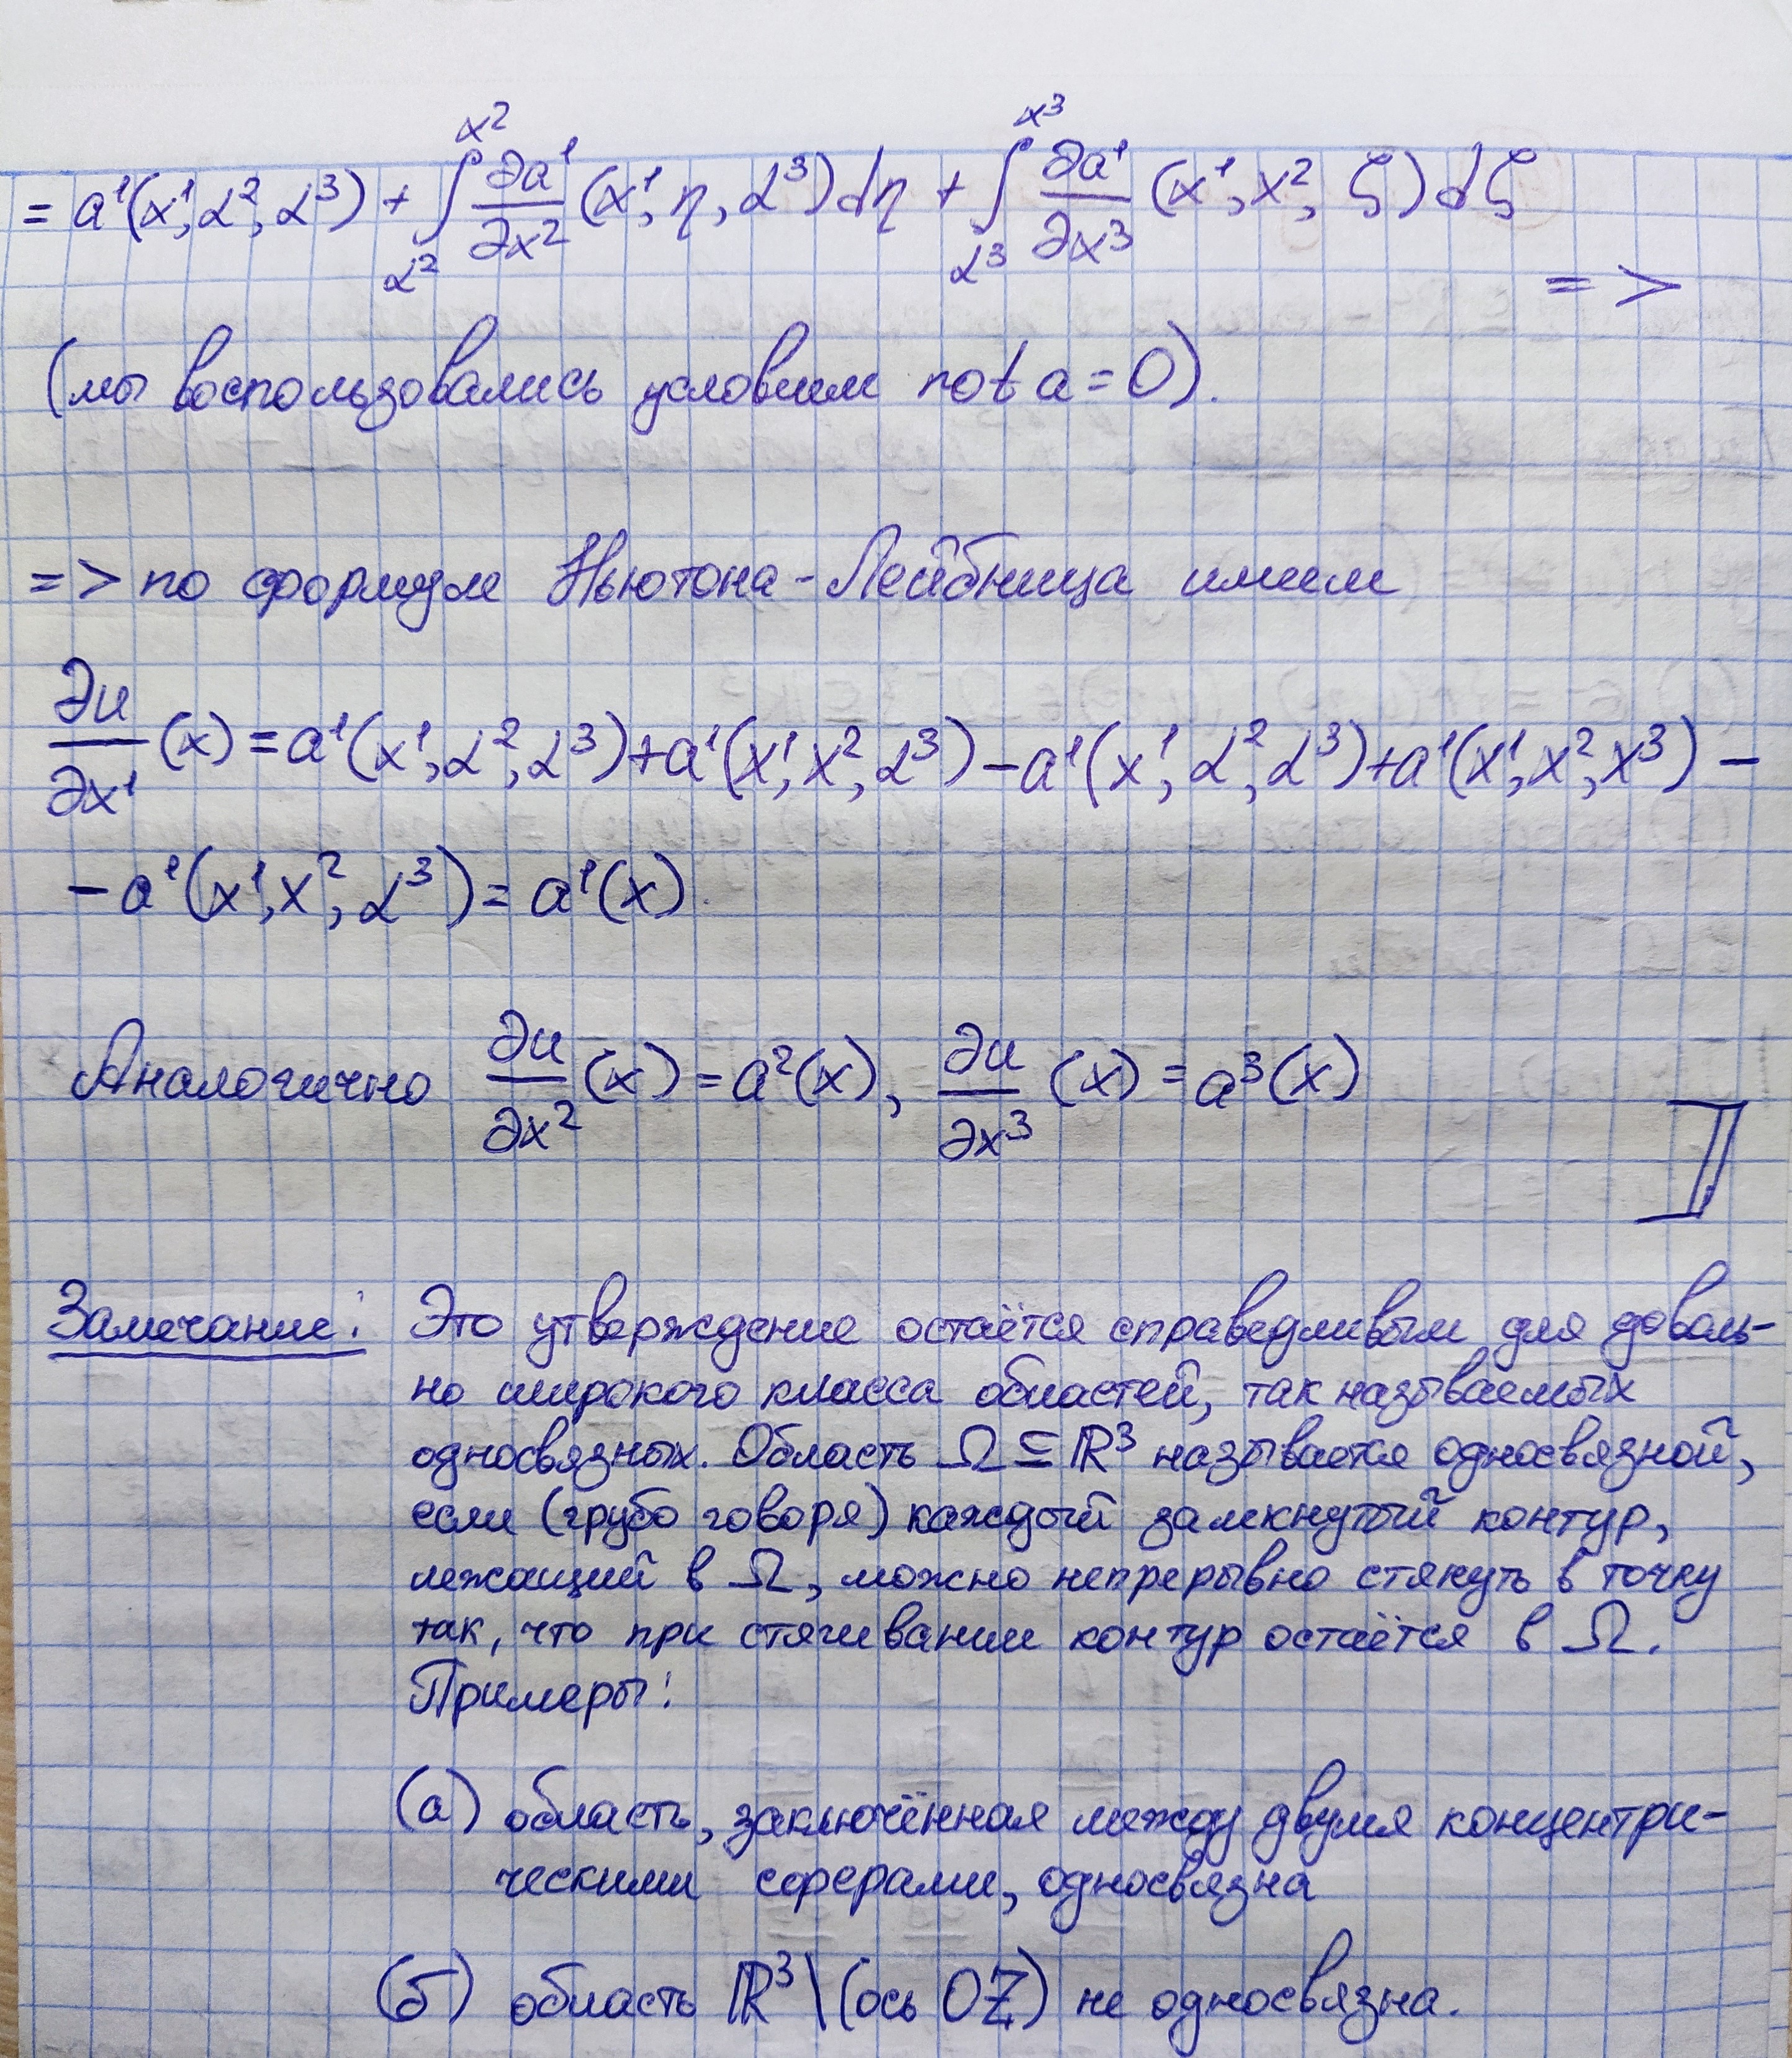 = a¹(x¹, α², α³) + ∫_{α²}^{x²} ∂a¹/∂x² (x¹, η, α³) dη + ∫_{α³}^{x³} ∂a¹/∂x³ (x¹, x², ζ) dζ
=>
(мы воспользовались условием rot a = 0).
=> по формуле Ньютона-Лейбница имеем
∂u/∂x¹ (x) = a¹(x¹, α², α³) + a¹(x¹, x², α³) − a¹(x¹, α², α³) + a¹(x¹, x², x³) −
− a¹(x¹, x², α³) = a¹(x).
Аналогично ∂u/∂x² (x) = a²(x), ∂u/∂x³ (x) = a³(x)
Замечание: Это утверждение остаётся справедливым для доволь-
но широкого класса областей, так называемых
односвязных. Область Ω ⊆ ℝ³ называется односвязной,
если (грубо говоря) каждый замкнутый контур,
лежащий в Ω, можно непрерывно стянуть в точку
так, что при стягивании контур остаётся в Ω.
Примеры:
(а) область, заключённая между двумя концентри-
ческими сферами, односвязна
(б) область ℝ³ \ (ось OZ) не односвязна.